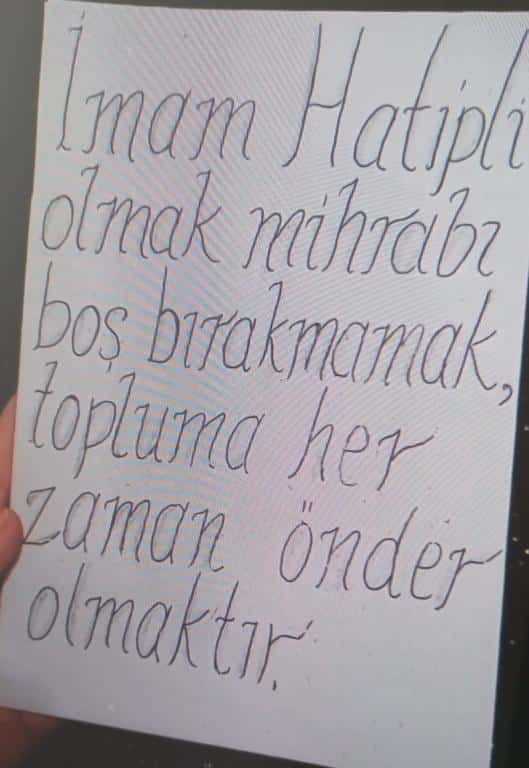 İmam Hatipli
olmak mihrabı
boş bırakmamak,
topluma her
zaman önder
olmaktır.